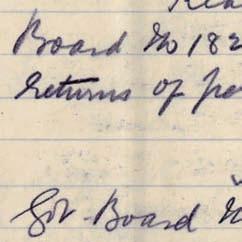 Board No 182
returns of
Gov. Board No